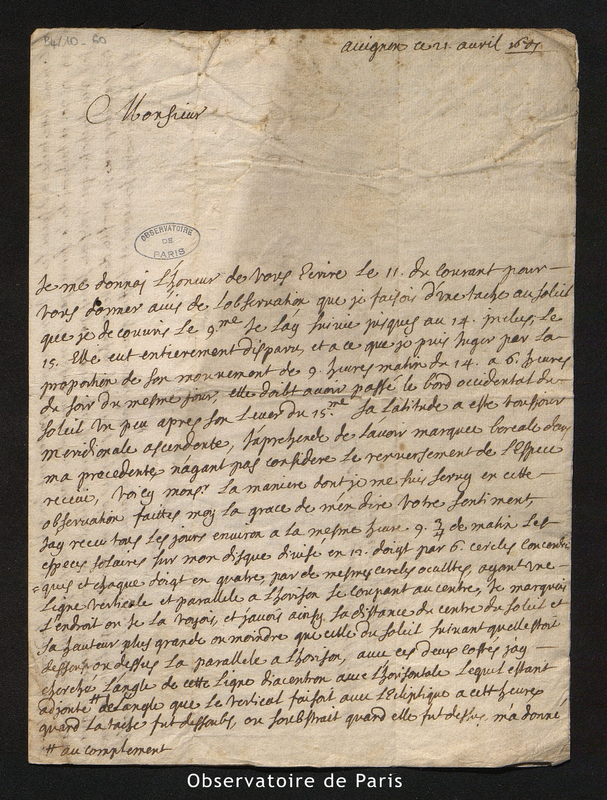 B4/10 - 60
avignon ce 21. avril
Monsieur
OBSERVATOIRE
DE
PARIS
Je me donnai l'honeur de vous Ecrire Le 11. du courant pour
vous donner avis de l'observation que je faisois d'une tache au soleil
que je decouvris Le 9.me Je l'ay suivie jusques au 14. inclus, Le
15. Elle eut entierement disparu, et a ce que je puis juger par la
proportion de son mouvement de 9. heures matin du 14. a 6. heures
du soir du mesme jour, elle doibt avoir passé le bord occidental du
soleil un peu apres son Lever du 15.me sa Latitude a esté tousjour
meridionale ascendente, j'aprehende de l'avoir marquée boreale dans
ma precedente nayant pas consideré Le renversement de l'Espece
receüe, voicy monsr. La maniere dont je me suis servy en cette
observation faittes moy la grace de m'en dire vôtre sentiment,
Jay receu tous les jours environ a la mesme heure 9. 3/4 de matin Les
especes solaires sur mon disque divisé en 12. doigt par 6. cercles concentri
=ques et chaque doigt en quatre, par de mesmes cercles occultes, ayant une
Ligne verticale et parallele a L'horison se coupant au centre, Je marquais
L'endroit ou Je la voyois, et j'avois ainsy sa distance du centre du soleil et
sa hauteur plus grande ou moindre que celle du soleil suivant quelle estoit
dessous ou dessus La parallele a L'horison, avec ces deux costés jay
cherché L'angle de cette Ligne avec L'horisontale Lequel estant
adjouté # de L'angle que Le vertical faisoit avec L'Ecliptique a cett' heure
quand La tache fut dessoubs, ou soubstrait quand elle fut dessus, m'a donné
# au complement
Observatoire de Paris